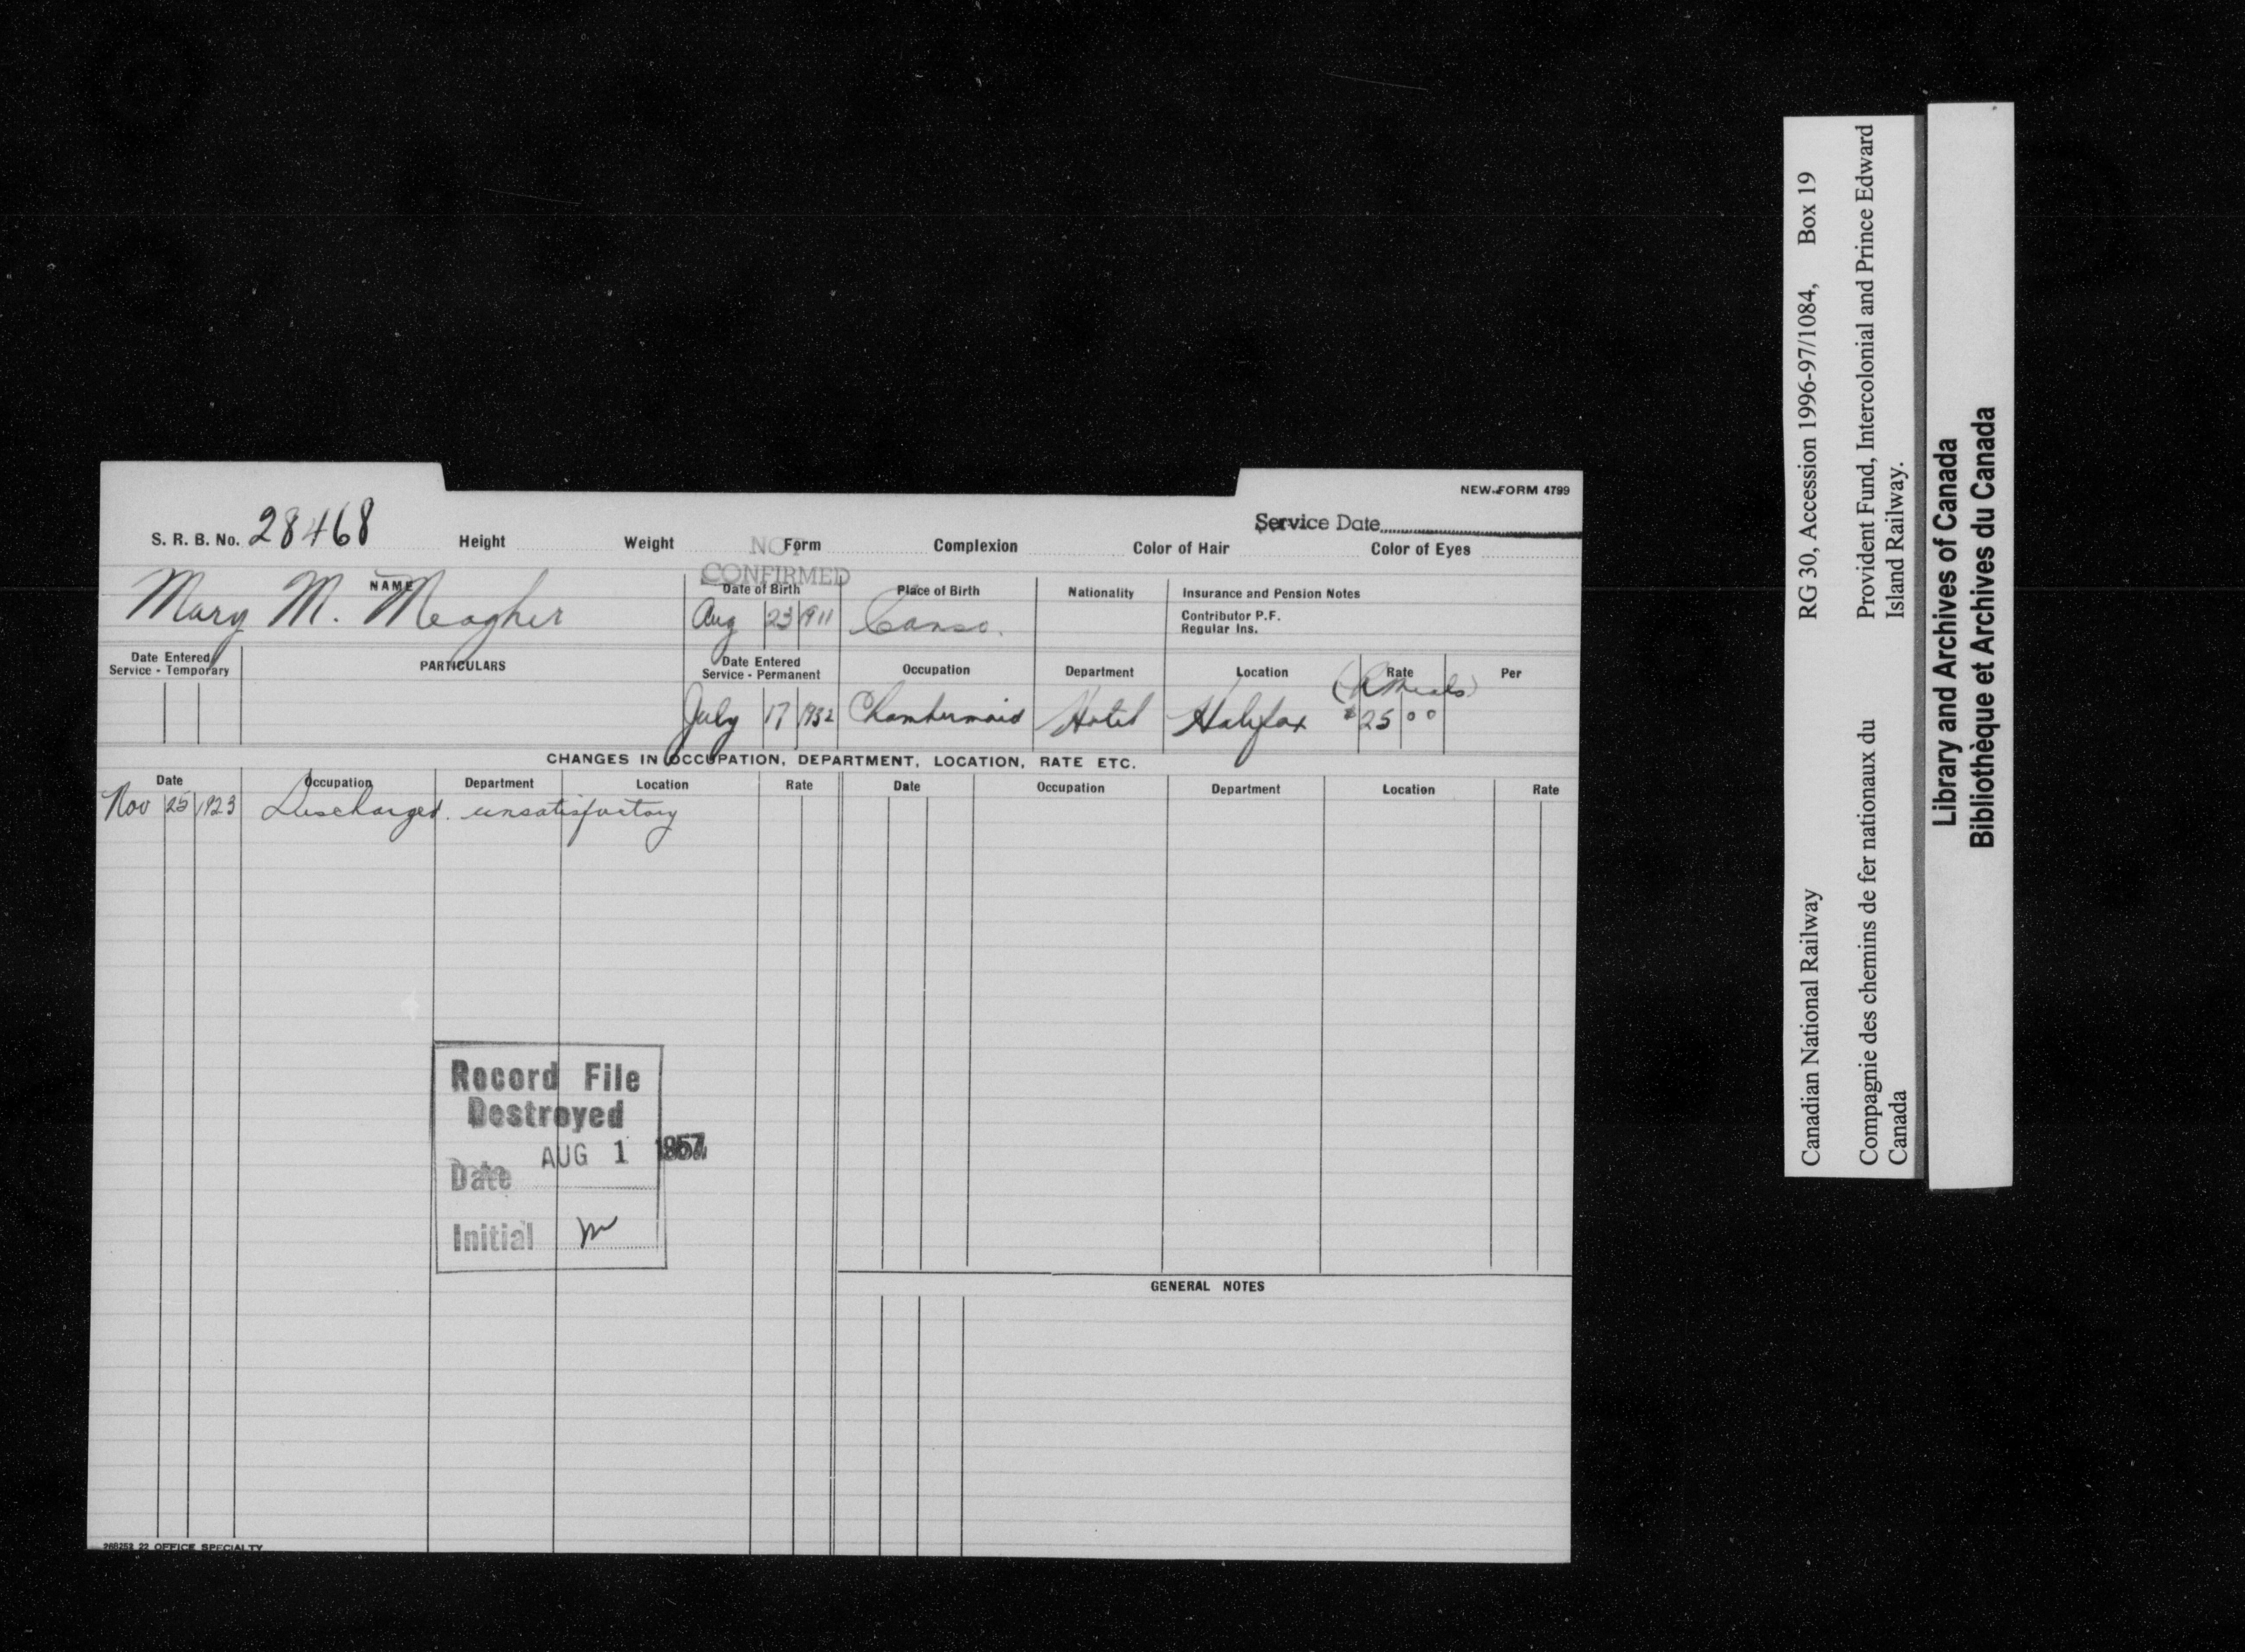 NEW-FORM 4799
Service Date
S. R. B. No. 28468 Height Weight Form Complexion Color of Hair Color of Eyes
NOT
CONFIRMED
NAME Date of Birth Place of Birth Nationality Insurance and Pension Notes
Mary M. Meagher Aug 23 1911 Canso. Contributor P.F.
Regular Ins.
Date Entered Service - Temporary PARTICULARS Date Entered Service - Permanent Occupation Department Location Rate Per
(& Meals)
July 17 1932 Chambermaid Hotel Halifax $25 00
CHANGES IN OCCUPATION, DEPARTMENT, LOCATION, RATE ETC.
Date Occupation Department Location Rate Date Occupation Department Location Rate
Nov 25 1923 Discharged. unsatisfactory
Record File
Destroyed
AUG 1 1957
Date
Initial
GENERAL NOTES
268253 22 OFFICE SPECIALTY
Canadian National Railway RG 30, Accession 1996-97/1084, Box 19
Compagnie des chemins de fer nationaux du Provident Fund, Intercolonial and Prince Edward
Canada Island Railway.
Library and Archives of Canada
Bibliothèque et Archives du Canada